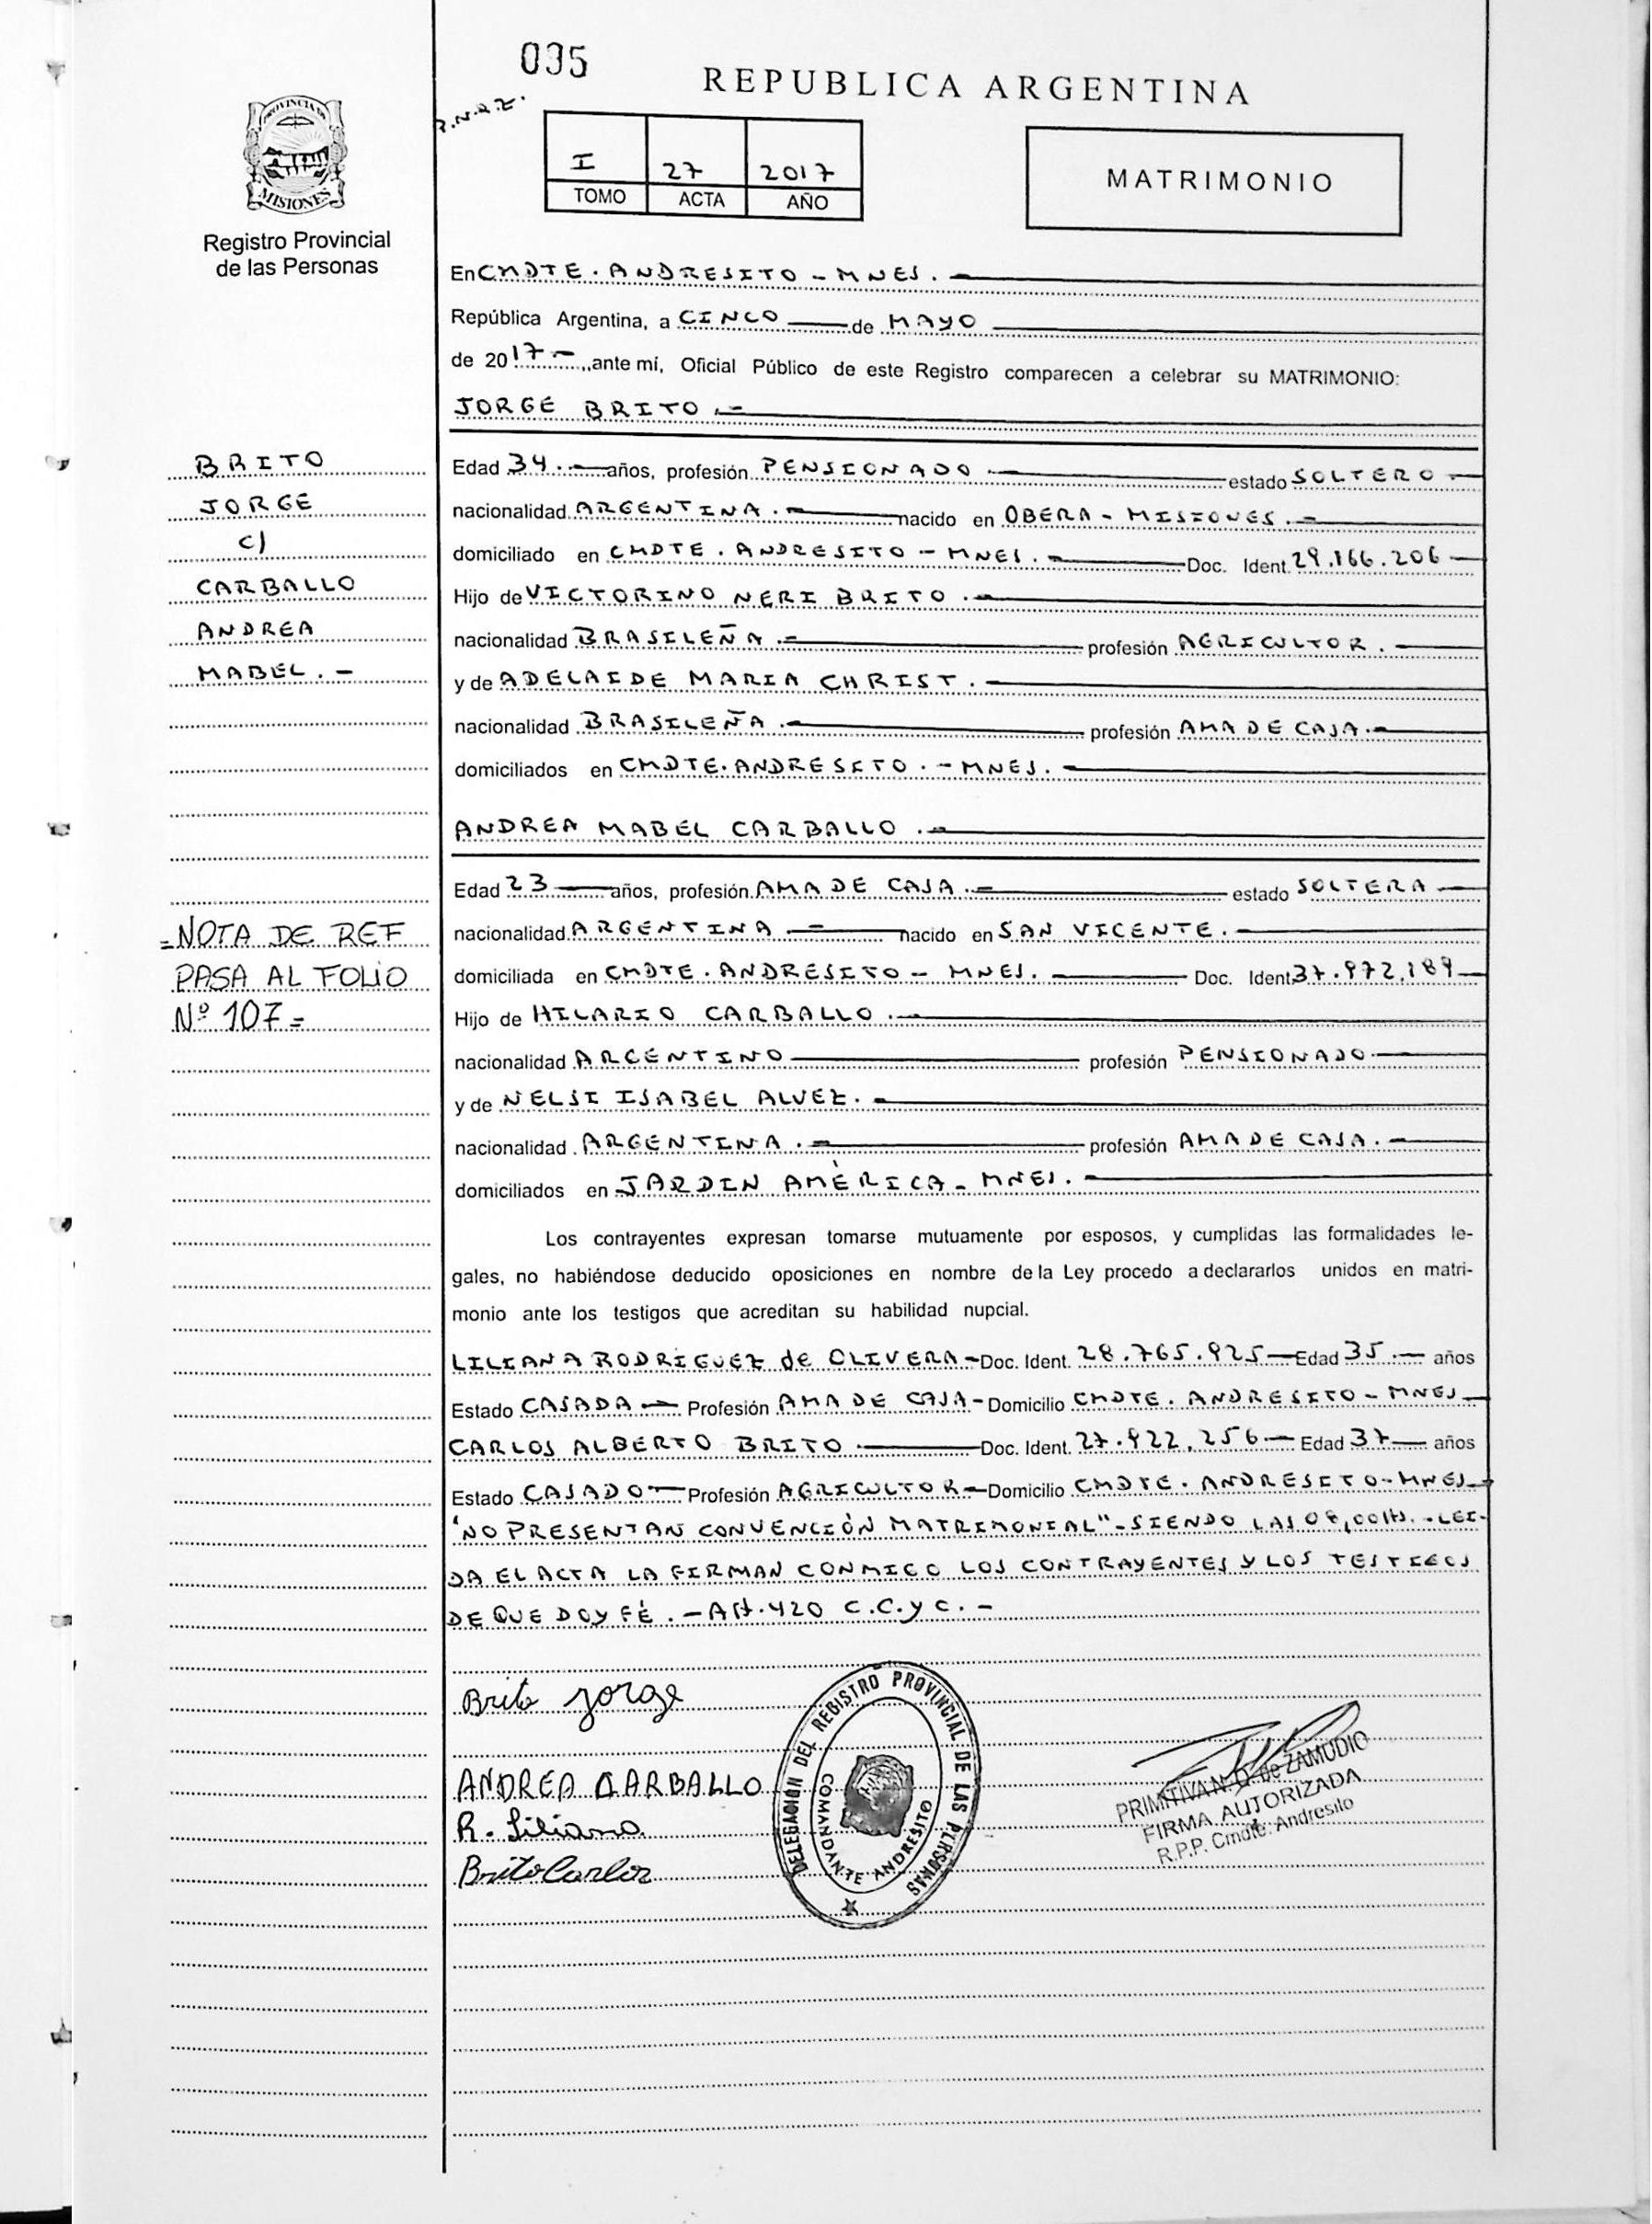 035
REPUBLICA ARGENTINA
I 27 2017
TOMO ACTA AÑO
MATRIMONIO
PROVINCIA DE
MISIONES
Registro Provincial
de las Personas
En CMDTE. ANDRESITO - MNES. -
República Argentina, a CINCO de MAYO
de 2017 -, ante mí, Oficial Público de este Registro comparecen a celebrar su MATRIMONIO:
JORGE BRITO. -
BRITO
JORGE
c/
CARBALLO
ANDREA
MABEL. -
Edad 34. - años, profesión PENSIONADO. - estado SOLTERO -
nacionalidad ARGENTINA. - nacido en OBERA - MISIONES. -
domiciliado en CMDTE. ANDRESITO - MNES. - Doc. Ident. 29.166.206 -
Hijo de VICTORINO NERI BRITO. -
nacionalidad BRASILEÑA. - profesión AGRICULTOR. -
y de ADELAIDE MARIA CHRIST. -
nacionalidad BRASILEÑA. - profesión AMA DE CASA. -
domiciliados en CMDTE. ANDRESITO. - MNES. -
ANDREA MABEL CARBALLO. -
Edad 23 - años, profesión AMA DE CASA. - estado SOLTERA -
nacionalidad ARGENTINA - nacido en SAN VICENTE. -
domiciliada en CMDTE. ANDRESITO - MNES. - Doc. Ident. 37.972.189 -
Hijo de HILARIO CARBALLO. -
nacionalidad ARGENTINO - profesión PENSIONADO. -
y de NELSI ISABEL ALVEZ. -
nacionalidad ARGENTINA. - profesión AMA DE CASA. -
domiciliados en JARDIN AMÉRICA - MNES. -
= NOTA DE REF
PASA AL FOLIO
Nº 107 =
Los contrayentes expresan tomarse mutuamente por esposos, y cumplidas las formalidades le-
gales, no habiéndose deducido oposiciones en nombre de la Ley procedo a declararlos unidos en matri-
monio ante los testigos que acreditan su habilidad nupcial.
LILIANA RODRIGUEZ de OLIVERA - Doc. Ident. 28.765.925 - Edad 35. - años
Estado CASADA - Profesión AMA DE CASA - Domicilio CMDTE. ANDRESITO - MNES -
CARLOS ALBERTO BRITO - Doc. Ident. 27.922.256 - Edad 37 - años
Estado CASADO - Profesión AGRICULTOR - Domicilio CMDTE. ANDRESITO - MNES -
"NO PRESENTAN CONVENCIÓN MATRIMONIAL" - SIENDO LAS 08,00 Hs. - LEI-
DA EL ACTA LA FIRMAN CONMIGO LOS CONTRAYENTES Y LOS TESTIGOS
DE QUE DOY FÉ. - Art. 420 C.C.y C. -
Brito Jorge
ANDREA CARBALLO
R. Liliana
Brito Carlos
DELEGACION DEL REGISTRO PROVINCIAL DE LAS PERSONAS
COMANDANTE ANDRESITO
PRIMITIVA N. Q. de ZAMUDIO
FIRMA AUTORIZADA
R.P.P. Cmdte. Andresito